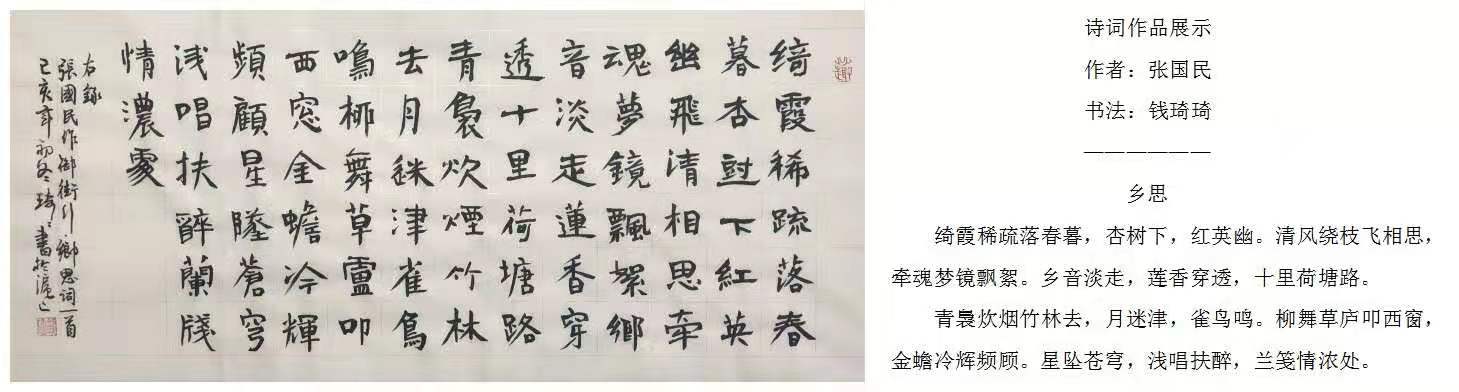 綺霞稀疏落春
暮杏尌下紅英
幽飛清相思牽
魂夢鏡飄絮鄉
音淡走蓮香穿
透十里荷塘路
青褭炊煙竹林
去月迷津雀鳥
鳴柳舞草廬叩
西窓金蟾冷輝
頻顧星墜蒼穹
浅唱扶醉蘭牋
情濃處
右錄
張國民作御街行鄉思詞一首
己亥年初冬琦琦書於滬上
诗词作品展示
作者：张国民
书法：钱琦琦
——————
乡思
绮霞稀疏落春暮，杏树下，红英幽。清风绕枝飞相思，
牵魂梦镜飘絮。乡音淡走，莲香穿透，十里荷塘路。
青褭炊烟竹林去，月迷津，雀鸟鸣。柳舞草庐叩西窗，
金蟾冷辉频顾。星坠苍穹，浅唱扶醉，兰笺情浓处。